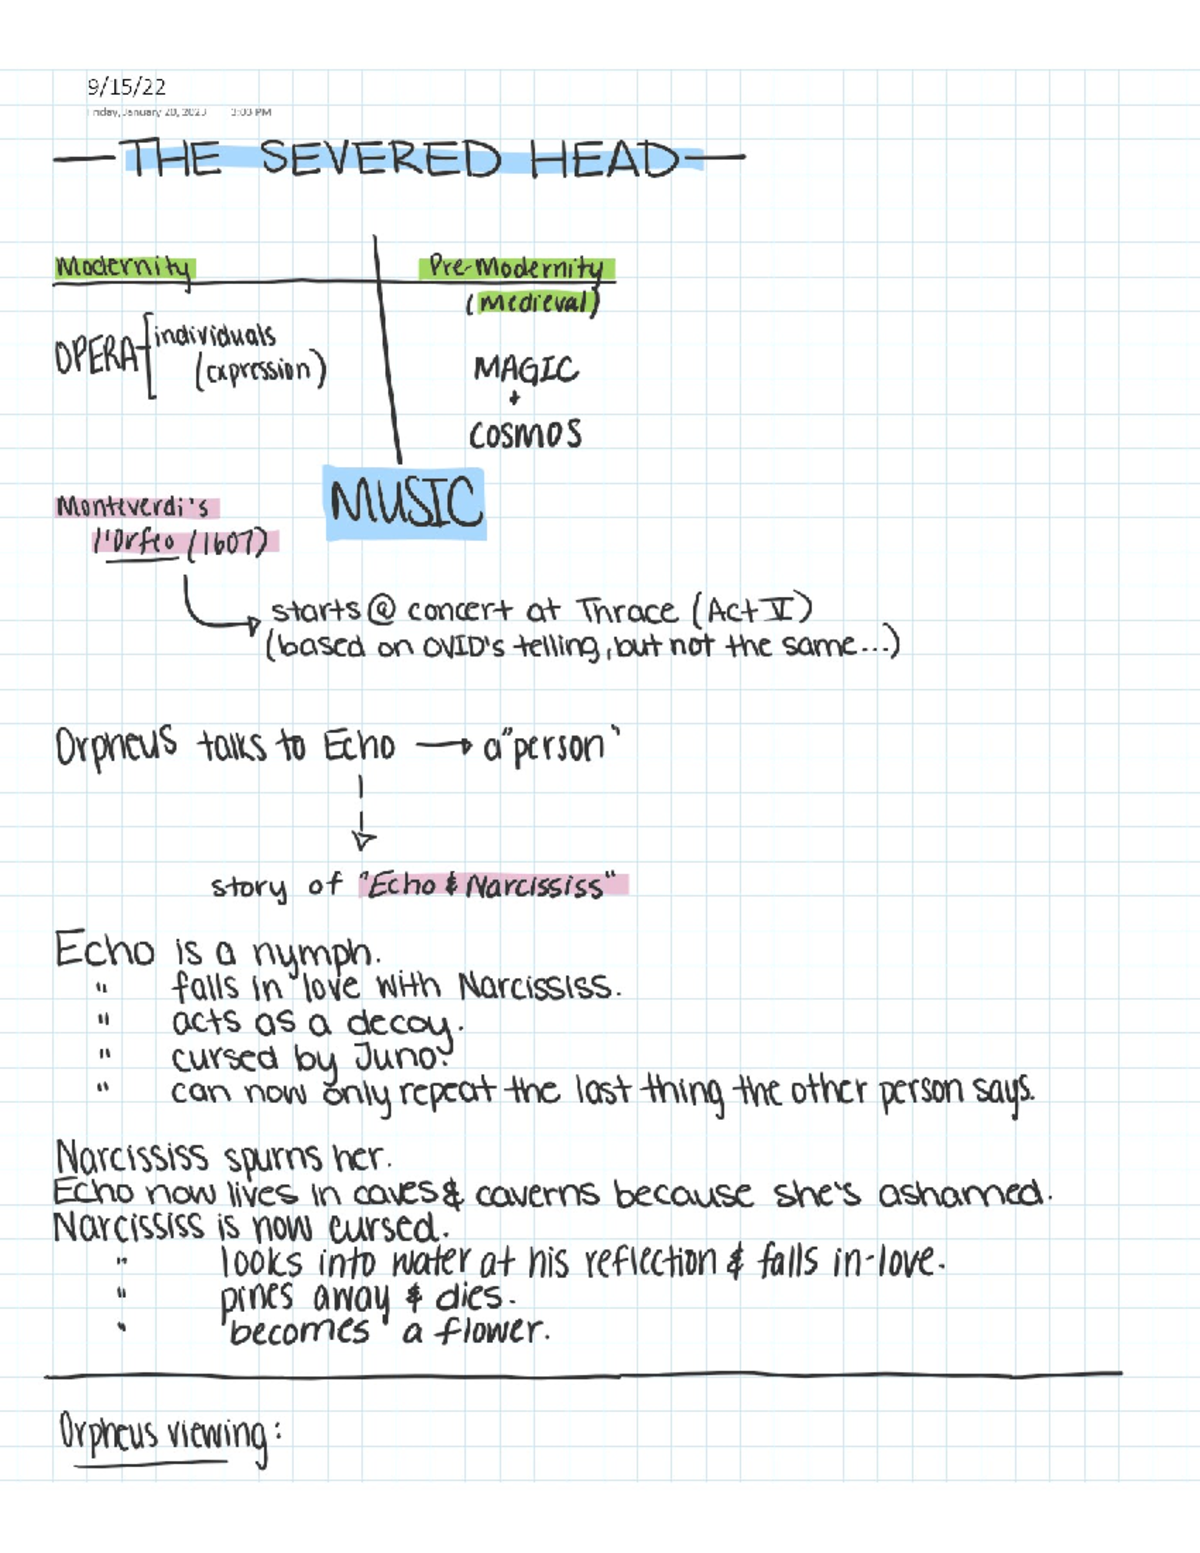 9/15/22
Friday, January 20, 2023 3:03 PM
— THE SEVERED HEAD —
Modernity
Pre-Modernity
(Medieval)
OPERA
individuals
(expression)
MAGIC
+
COSMOS
MUSIC
Monteverdi's
l'Orfeo (1607)
starts @ concert at Thrace (Act V)
(based on OVID's telling, but not the same...)
Orpheus talks to Echo → a "person"
story of "Echo & Narcississ"
Echo is a nymph.
" falls in love with Narcississ.
" acts as a decoy.
" cursed by Juno.
" can now only repeat the last thing the other person says.
Narcississ spurns her.
Echo now lives in caves & caverns because she's ashamed.
Narcississ is now cursed.
" looks into water at his reflection & falls in-love.
" pines away & dies.
" "becomes" a flower.
Orpheus viewing: